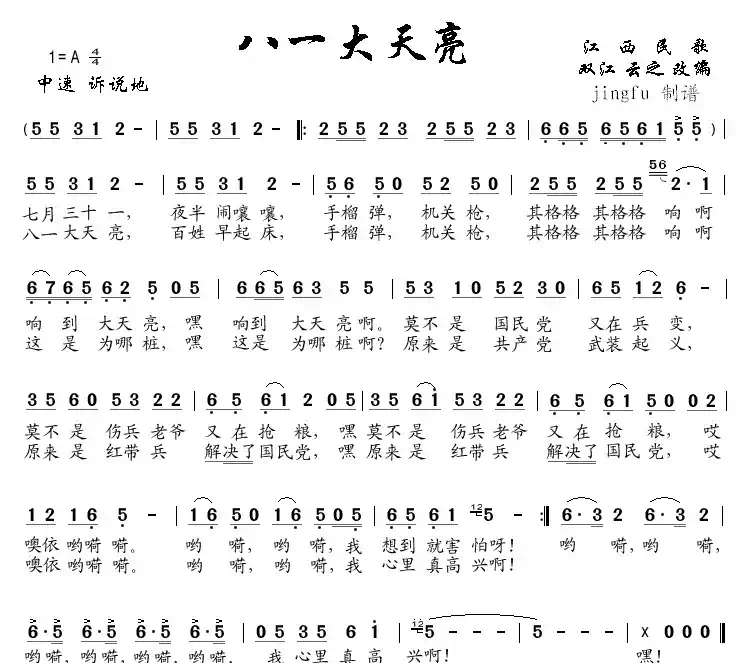 八一大天亮
1=A 4/4
江西民歌
中速 诉说地
双江 云之 改编
jingfu 制谱
(5 5 3 1 2 - | 5 5 3 1 2 - ‖: 2 5 5 2 3 2 5 5 2 3 | 6 6 5 6 5 6 1 5 5 ) |
5 5 3 1 2 - | 5 5 3 1 2 - | 5 6 5 0 5 2 5 0 | 2 5 5 2 5 5 56 2 · 1 |
七月三十一, 夜半闹嚷嚷, 手榴弹, 机关枪, 其格格 其格格 响啊
八一大天亮, 百姓早起床, 手榴弹, 机关枪, 其格格 其格格 响啊
6 7 6 5 6 2 5 0 5 | 6 6 5 6 3 5 5 | 5 3 1 0 5 2 3 0 | 6 5 1 2 6 - |
响到大天亮,嘿 响到大天亮啊。莫不是 国民党 又在兵变,
这是为哪桩,嘿 这是为哪桩啊?原来是 共产党 武装起义,
3 5 6 0 5 3 2 2 | 6 5 6 1 2 0 5 | 3 5 6 1 5 3 2 2 | 6 5 6 1 5 0 0 2 |
莫不是伤兵老爷 又在抢粮,嘿莫不是 伤兵老爷 又在抢粮,哎
原来是红带兵 解决了国民党,嘿原来是 红带兵 解决了国民党,哎
1 2 1 6 5 - | 1 6 5 1 6 5 0 5 | 6 5 6 1 12 5 - :‖ 6 · 3 2 6 · 3 2 |
噢依哟嗬嗬。 哟嗬,哟嗬,我 想到就害怕呀! 哟嗬,哟嗬,
噢依哟嗬嗬。 哟嗬,哟嗬,我 心里真高兴啊!
6 · 5 6 · 5 6 · 5 6 · 5 | 0 5 3 5 6 i | 12 5 - - - | 5 - - - | x 0 0 0 ‖
哟嗬,哟嗬,哟嗬,哟嗬, 我心里真高 兴啊! 嘿!